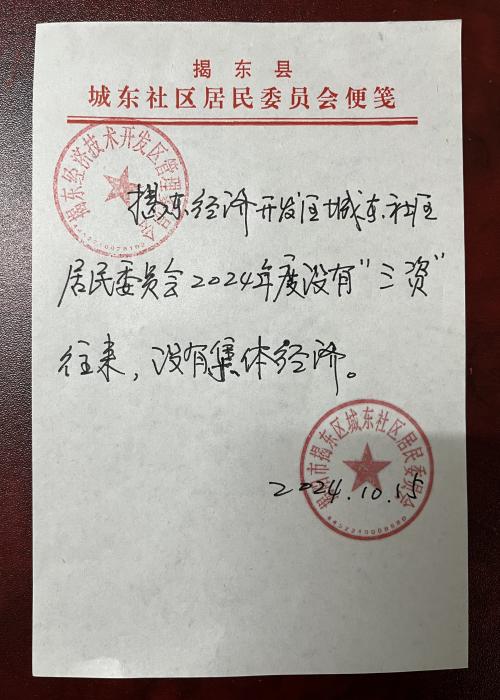 揭东县
城东社区居民委员会便笺
揭东经济技术开发区管理委员会
揭东经济开发区城东社区
居民委员会2024年度没有“三资”
往来，没有集体经济。
揭阳市揭东区城东社区居民委员会
2024.10.15